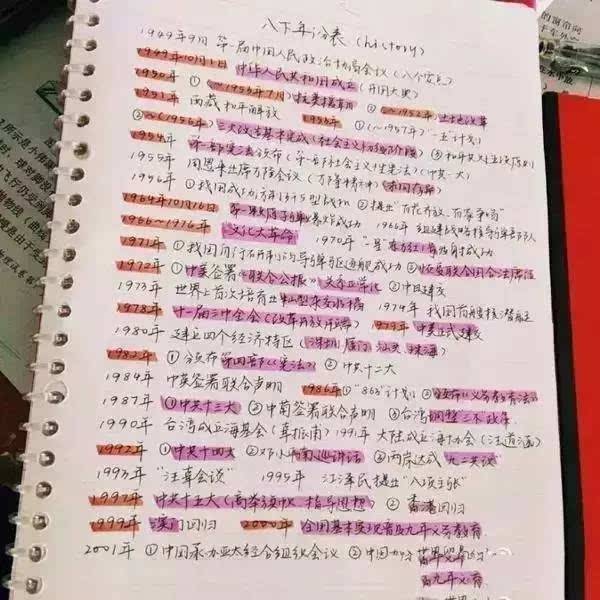 八下年份表 (history)
1949年9月 第一届中国人民政治协商会议 (八个要点)
1949年10月1日 中华人民共和国成立 (开国大典)
1950年 ① (~1953年7月) 抗美援朝 ② (~1952年) 土地改革
1951年 西藏和平解放 1953年 ① (~1957年) "一五"计划
②~(1956年) 三大改造基本完成 (社会主义初级阶段) ③ 和平共处五项原则
1954年 第一部宪法颁布 (第一部社会主义性宪法) (中共一大)
1955年 周恩来出席万隆会议 (万隆精神) 求同存异
1956年 ① 我国成功仿制 型战机 ② 提出"百花齐放,百家争鸣"
1964年10月16日 第一颗原子弹爆炸成功 1966年 组建战略核导弹部队
1966~1976年 文化大革命 1970年 "东方红一号"发射成功
1971年 ① 我国 制的导弹驱逐舰成功 ② 恢复联合国合法席位
1972年 ① 中美签署《联合公报》 关系正常化 ② 中日建交
1973年 世界上首次培育出籼型杂交水稻 1974年 我国首艘核潜艇
1978年 十一届三中全会 (改革开放开端) 1979年 中美正式建交
1980年 建立四个经济特区 (深圳 厦门 汕头 珠海)
1982年 ① 颁布第四部《宪法》 ② 中共十二大
1984年 中英签署联合声明 1986年 ① "863"计划 ② 颁布《义务教育法》
1987年 ① 中共十三大 ② 中葡签署联合声明 ③ 台湾调整三不政策
1990年 台湾成立海基会 (辜振甫) 1991年 大陆成立海协会 (汪道涵)
1992年 ① 中共十四大 ② 邓小平南巡讲话 ③ 两岸达成"九二共识"
1993年 "汪辜会谈" 1995年 江泽民提出"八项主张"
1997年 中共十五大 (高举 指导思想) ② 香港回归
1999年 澳门回归 2000年 全国基本实现普及九年义务教育
2001年 ① 中国承办亚太经合组织会议 ② 中国加入世界贸易
九年义务